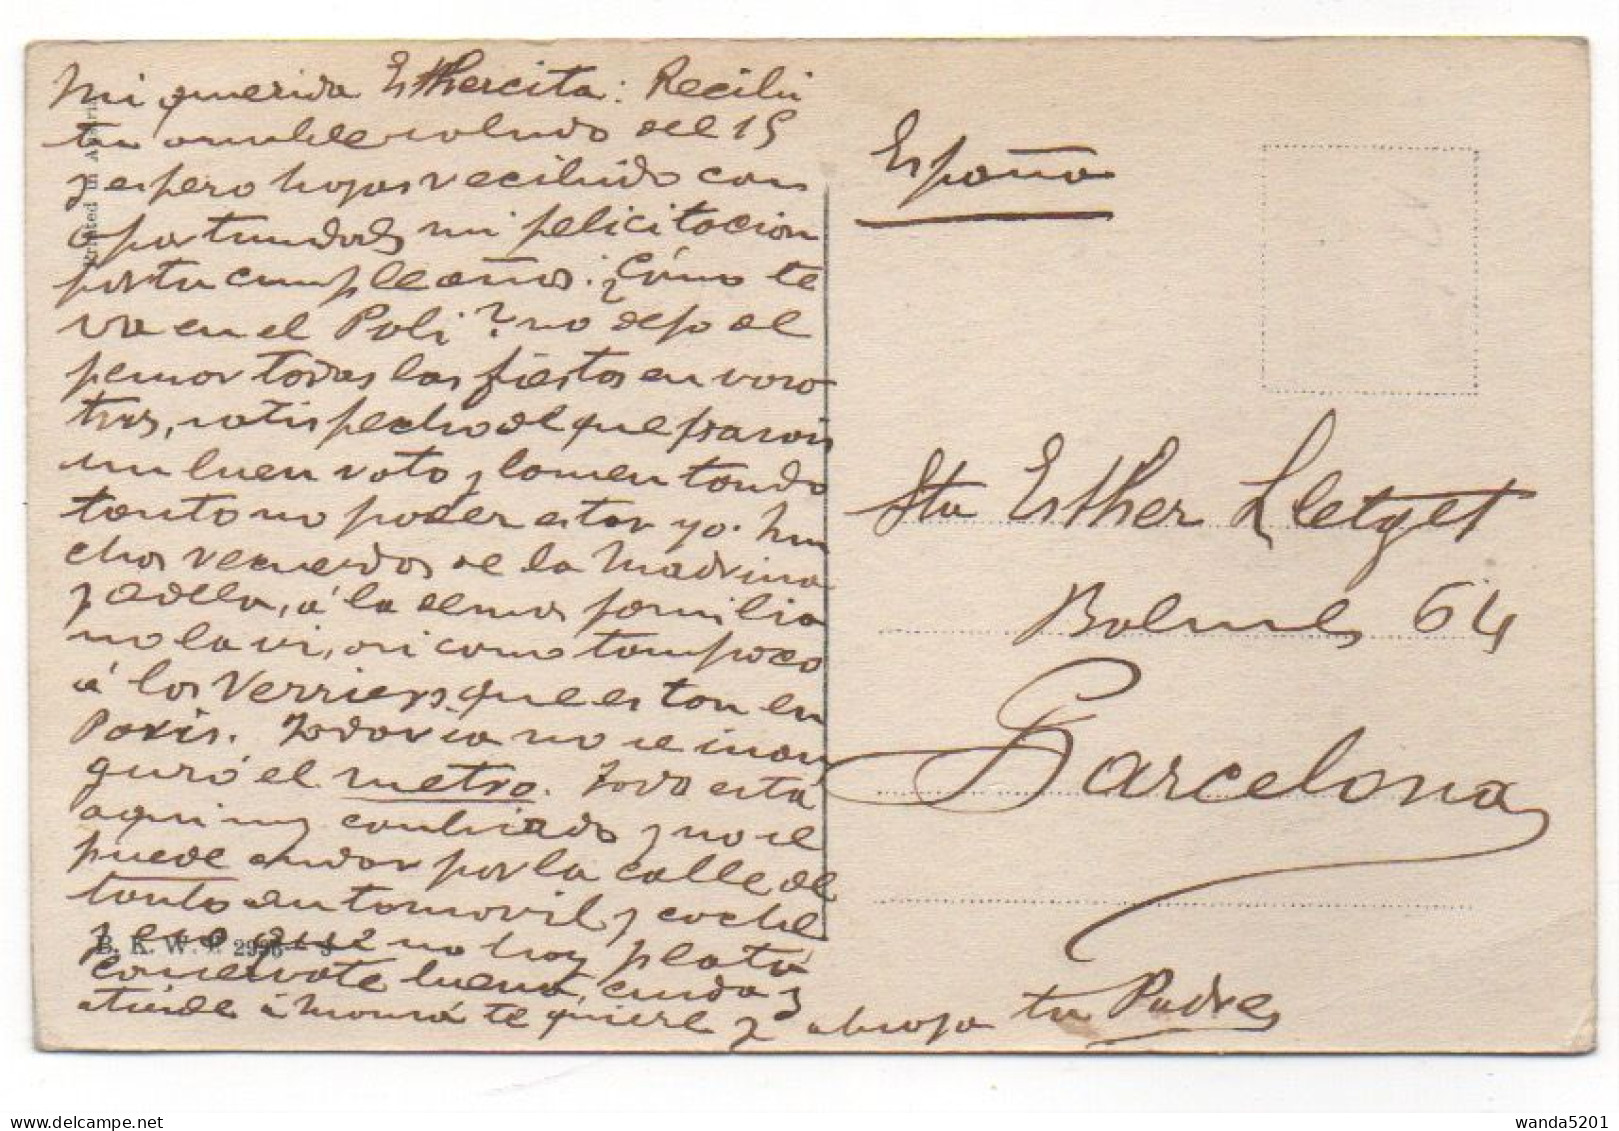 Mi querida Esthercita: Recibí
tu amable saludo del 15
y espero hayas recibido con
oportunidad mi felicitacion
por tu cumpleaños. ¿Cómo te
va en el Poli? no dejo de
pensar todas las fiestas en voso
tros, satisfecho de que paseis
un buen rato y lamentando
tanto no poder estar yo. Mu
chos recuerdos de la Madrina
y Adela, á la demas familia
no la vi, asi como tampoco
á los Verriers que estan en
Paris. Todavia no se inau
guró el metro. Todo está
aqui muy cambiado y no se
puede andar por la calle de
tanto automovil y coche
pero no hay plata
Conservate buena, cuida y
atiende á mamá te quiere y abraza tu Padre
Printed in Austria
B. K. W. I. 2996 - 3
España
Sta Esther Lletget
Balmes 64
Barcelona
wanda5201